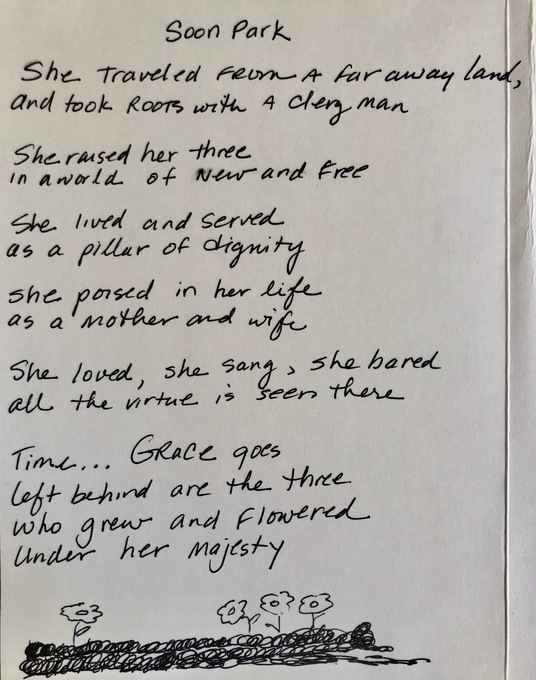 Soon Park
She traveled from a far away land,
and took Roots with a clergman
She raised her three
in a world of New and Free
She lived and served
as a pillar of dignity
she poised in her life
as a mother and wife
She loved, she sang, she bared
all the virtue is seen there
Time... Grace goes
left behind are the three
who grew and flowered
under her majesty